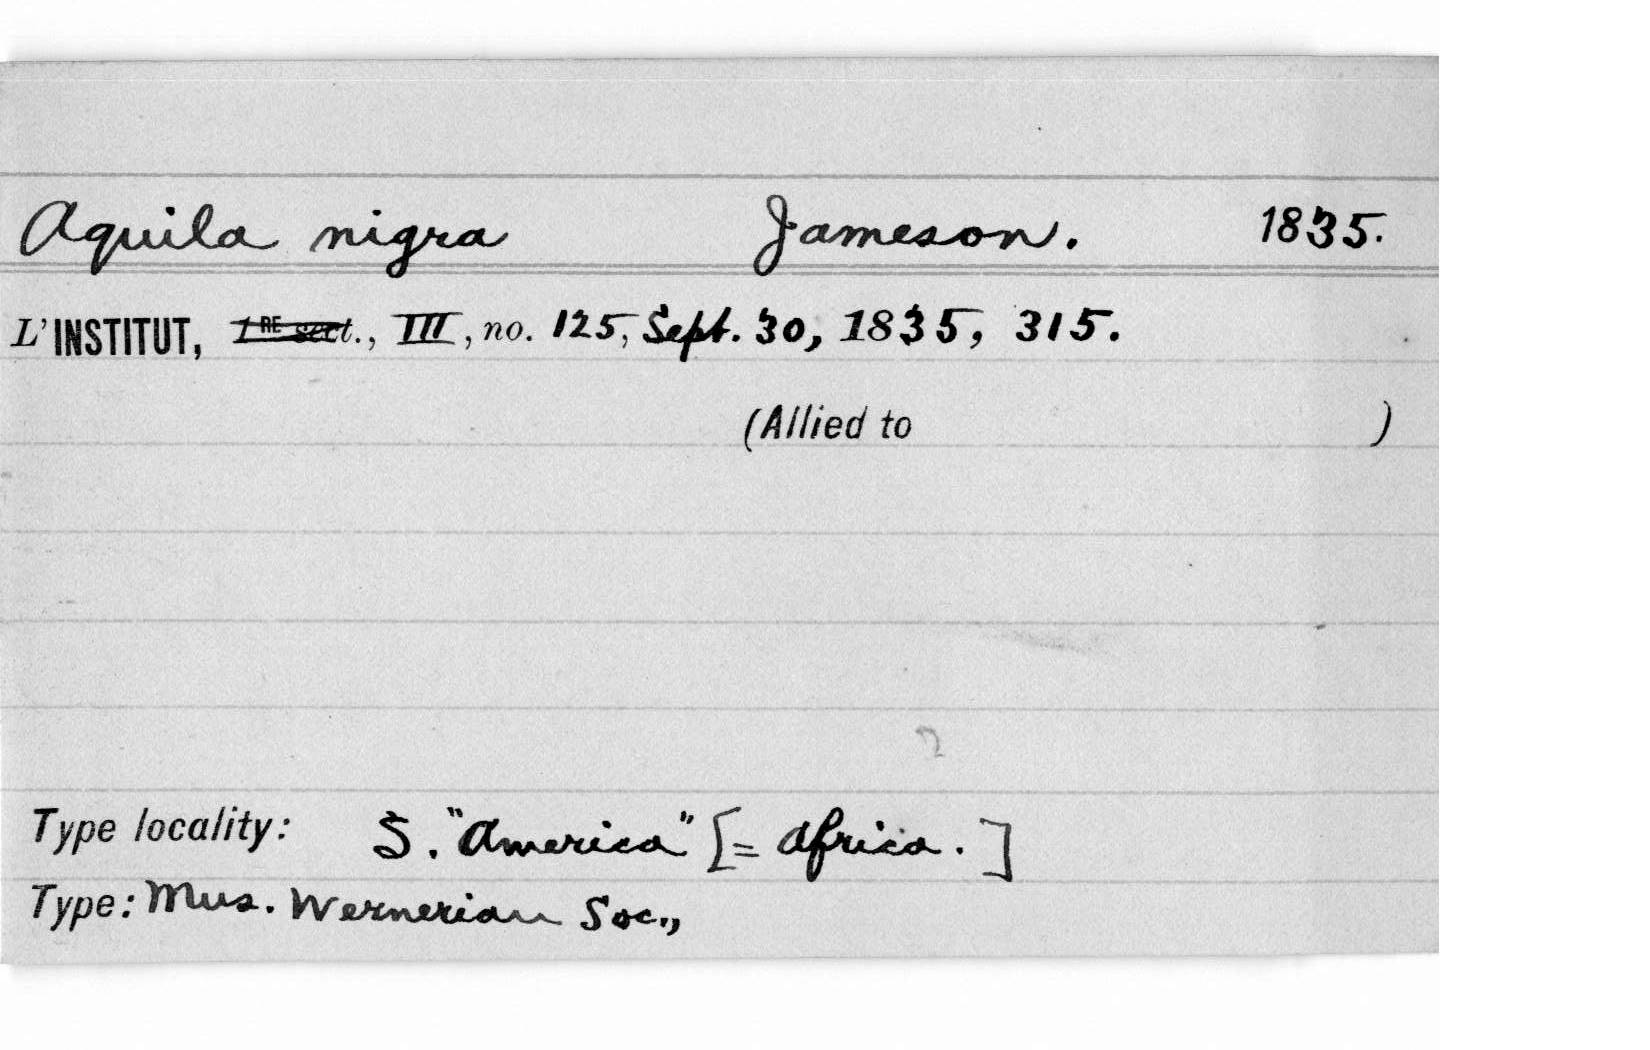 Aquila nigra Jameson. 1835.
L'INSTITUT, 1RE sect., III, no. 125, Sept. 30, 1835, 315.
(Allied to )
2
Type locality: S. "America" [= Africa.]
Type: Mus. Wernerian Soc.,